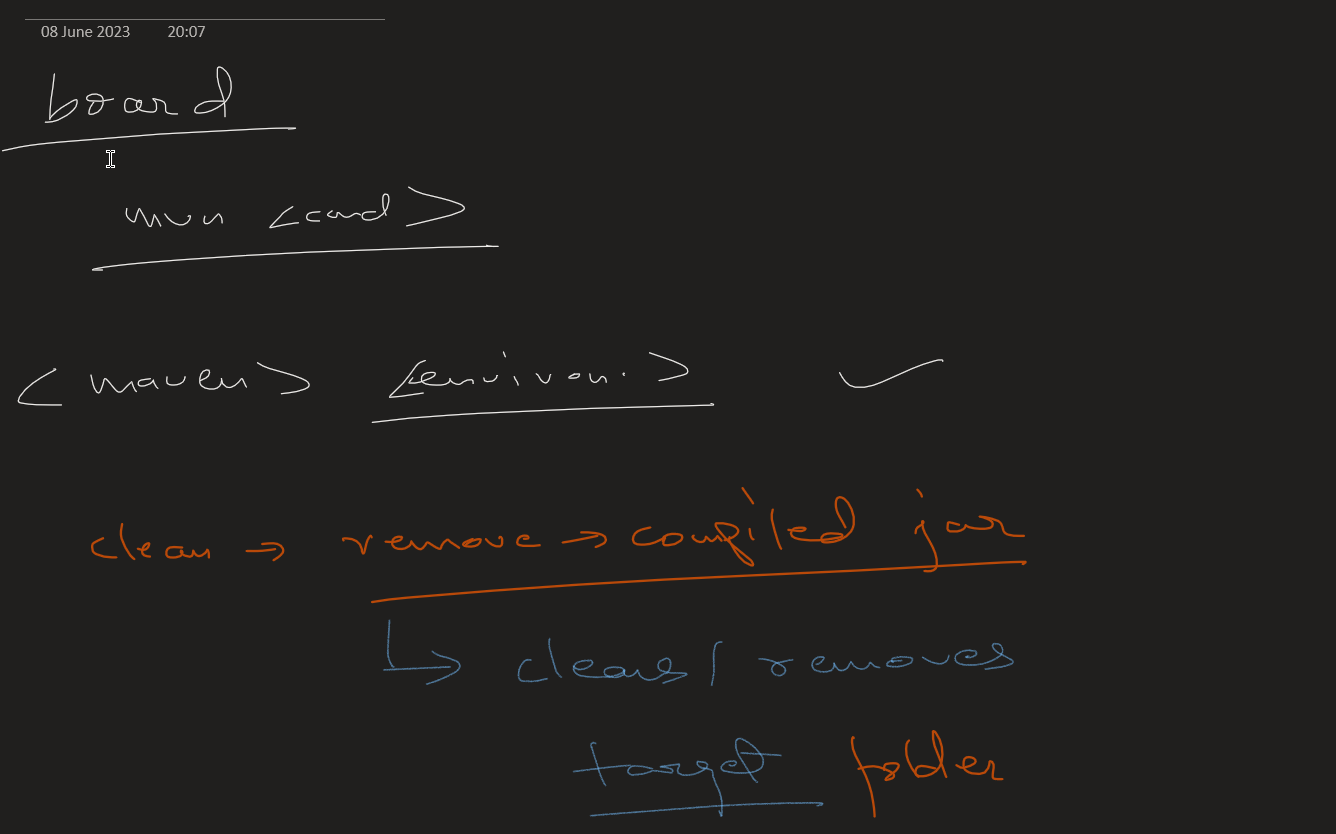 08 June 2023 20:07
board
mvn <cmd>
<maven> <environ.>
clean → remove → compiled jar
↳ cleans / removes
target folder